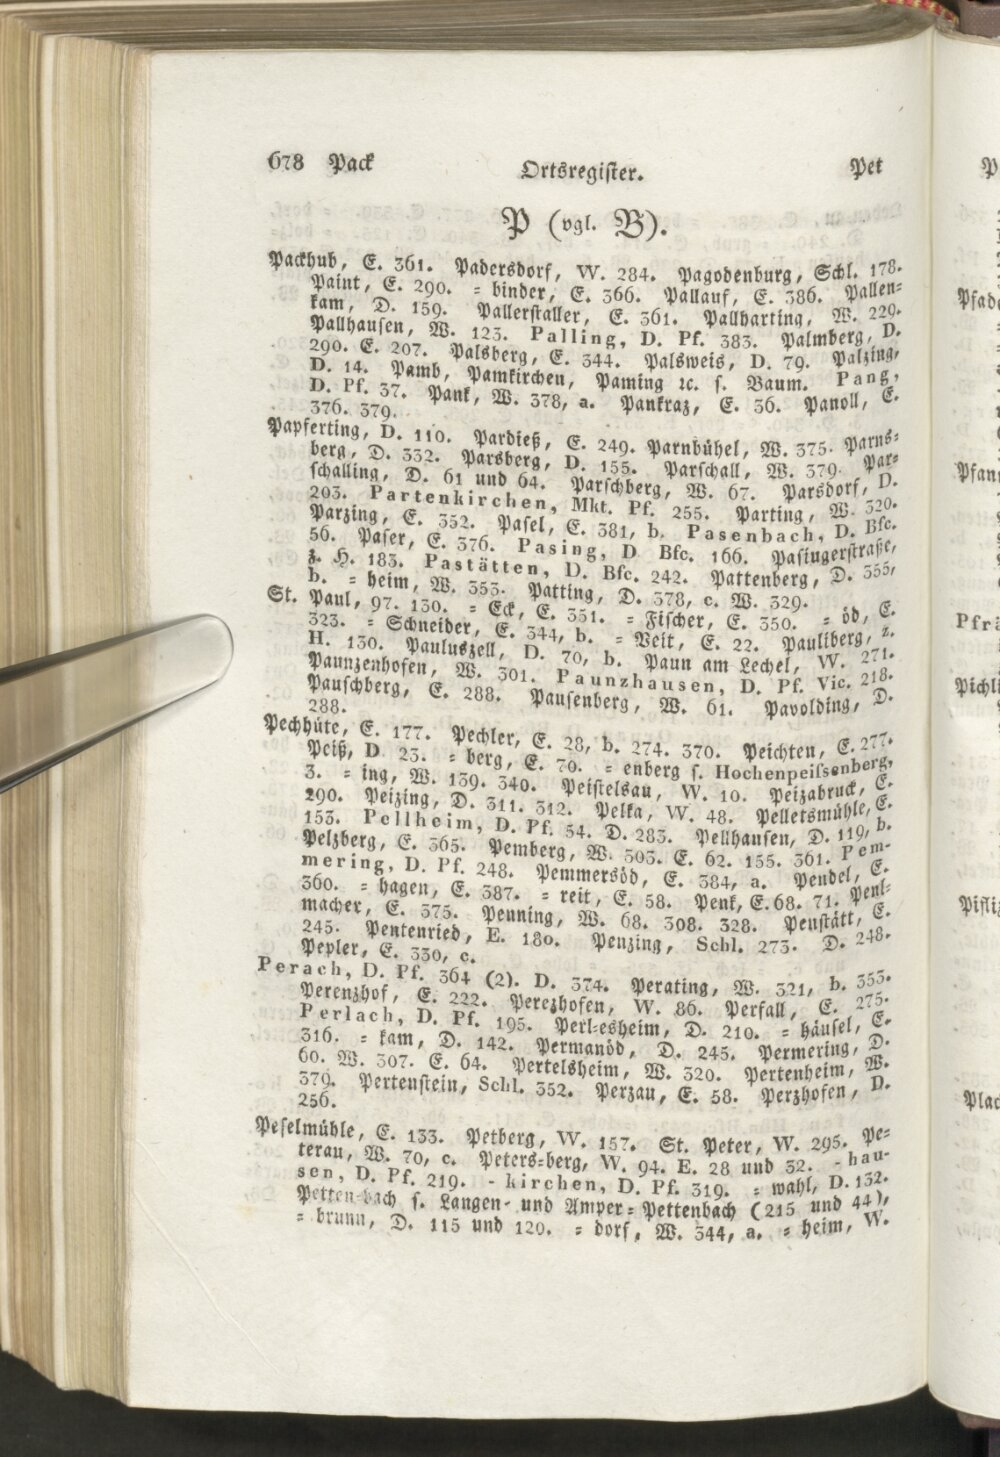 678 Pack Ortsregister. Pet
P (vgl. B).
Packhub, E. 361. Padersdorf, W. 284. Pagodenburg, Schl. 178.
Paint, E. 290. = binder, E. 366. Pallauf, E. 386. Pallen=
kam, D. 159. Pallerstaller, E. 361. Pallharting, W. 229.
Pallhausen, W. 123. Palling, D. Pf. 383. Palmberg, D.
290. E. 207. Palsberg, E. 344. Palsweis, D. 79. Palzing,
D. 14. Pamb, Pamkirchen, Paming ꝛc. s. Baum. Pang,
D. Pf. 37. Pank, W. 378, a. Pankraz, E. 36. Panoll, E.
376. 379.
Papferting, D. 110. Pardieß, E. 249. Parnbühel, W. 375. Parns=
berg, D. 332. Parsberg, D. 155. Parschall, W. 379. Par=
schalling, D. 61 und 64. Parschberg, W. 67. Parsdorf, D.
203. Partenkirchen, Mkt. Pf. 255. Parting, W. 320.
Parzing, E. 352. Pasel, E. 381, b. Pasenbach, D. Bfc.
56. Paser, E. 376. Pasing, D. Bfc. 166. Pasingerstraße,
z. H. 183. Pastätten, D. Bfc. 242. Pattenberg, D. 355,
b. = heim, W. 353. Patting, D. 378, c. W. 329.
St. Paul, 97. 130. = Eck, E. 351. = Fischer, E. 350. = öd, E.
323. = Schneider, E. 344, b. = Veit, E. 22. Pauliberg, z.
H. 130. Pauluszell, D. 70, b. Paun am Lechel, W. 271.
Paunzenhofen, W. 301. Paunzhausen, D. Pf. Vic. 218.
Pauschberg, E. 288. Pausenberg, W. 61. Pavolding, D.
288.
Pechhüte, E. 177. Pechler, E. 28, b. 274. 370. Peichten, E. 277.
Peiß, D 23. = berg, E. 70. = enberg s. Hochenpeissenberg,
3. = ing, W. 139. 340. Peistelsau, W. 10. Peizabruck, E.
290. Peizing, D. 311. 312. Pelka, W. 48. Pelletsmühle, E.
153. Pellheim, D. Pf. 54. D. 283. Pellhausen, D. 119, b.
Pelzberg, E. 365. Pemberg, W. 303. E. 62. 155. 361. Pem-
mering, D. Pf. 248. Pemmersöd, E. 384, a. Pendel, E.
360. = hagen, E. 387. = reit, E. 58. Penk, E. 68. 71. Penl=
macher, E. 375. Penning, W. 68. 308. 328. Penstätt, E.
245. Pentenried, E. 180. Penzing, Schl. 273. D. 248.
Pepler, E. 330, c.
Perach, D. Pf. 364 (2). D. 374. Perating, W. 321, b. 353.
Perenzhof, E. 222. Perezhofen, W. 86. Perfall, E. 275.
Perlach, D. Pf. 195. Perl=esheim, D. 210. = häusel, E.
316. = kam, D. 142. Permanöd, D. 245. Permering, D.
60. W. 307. E. 64. Pertelsheim, W. 320. Pertenheim, W.
379. Pertenstein, Schl. 352. Perzau, E. 58. Perzhofen, D.
256.
Peselmühle, E. 133. Petberg, W. 157. St. Peter, W. 295. Pe=
terau, W. 70, c. Peters=berg, W. 94. E. 28 und 32. - hau-
sen, D. Pf. 219. - kirchen, D. Pf. 319. = wahl, D. 132.
Petten=bach s. Langen= und Amper=Pettenbach (215 und 44),
= brunn, D. 115 und 120. = dorf, W. 344, a. = heim, W.